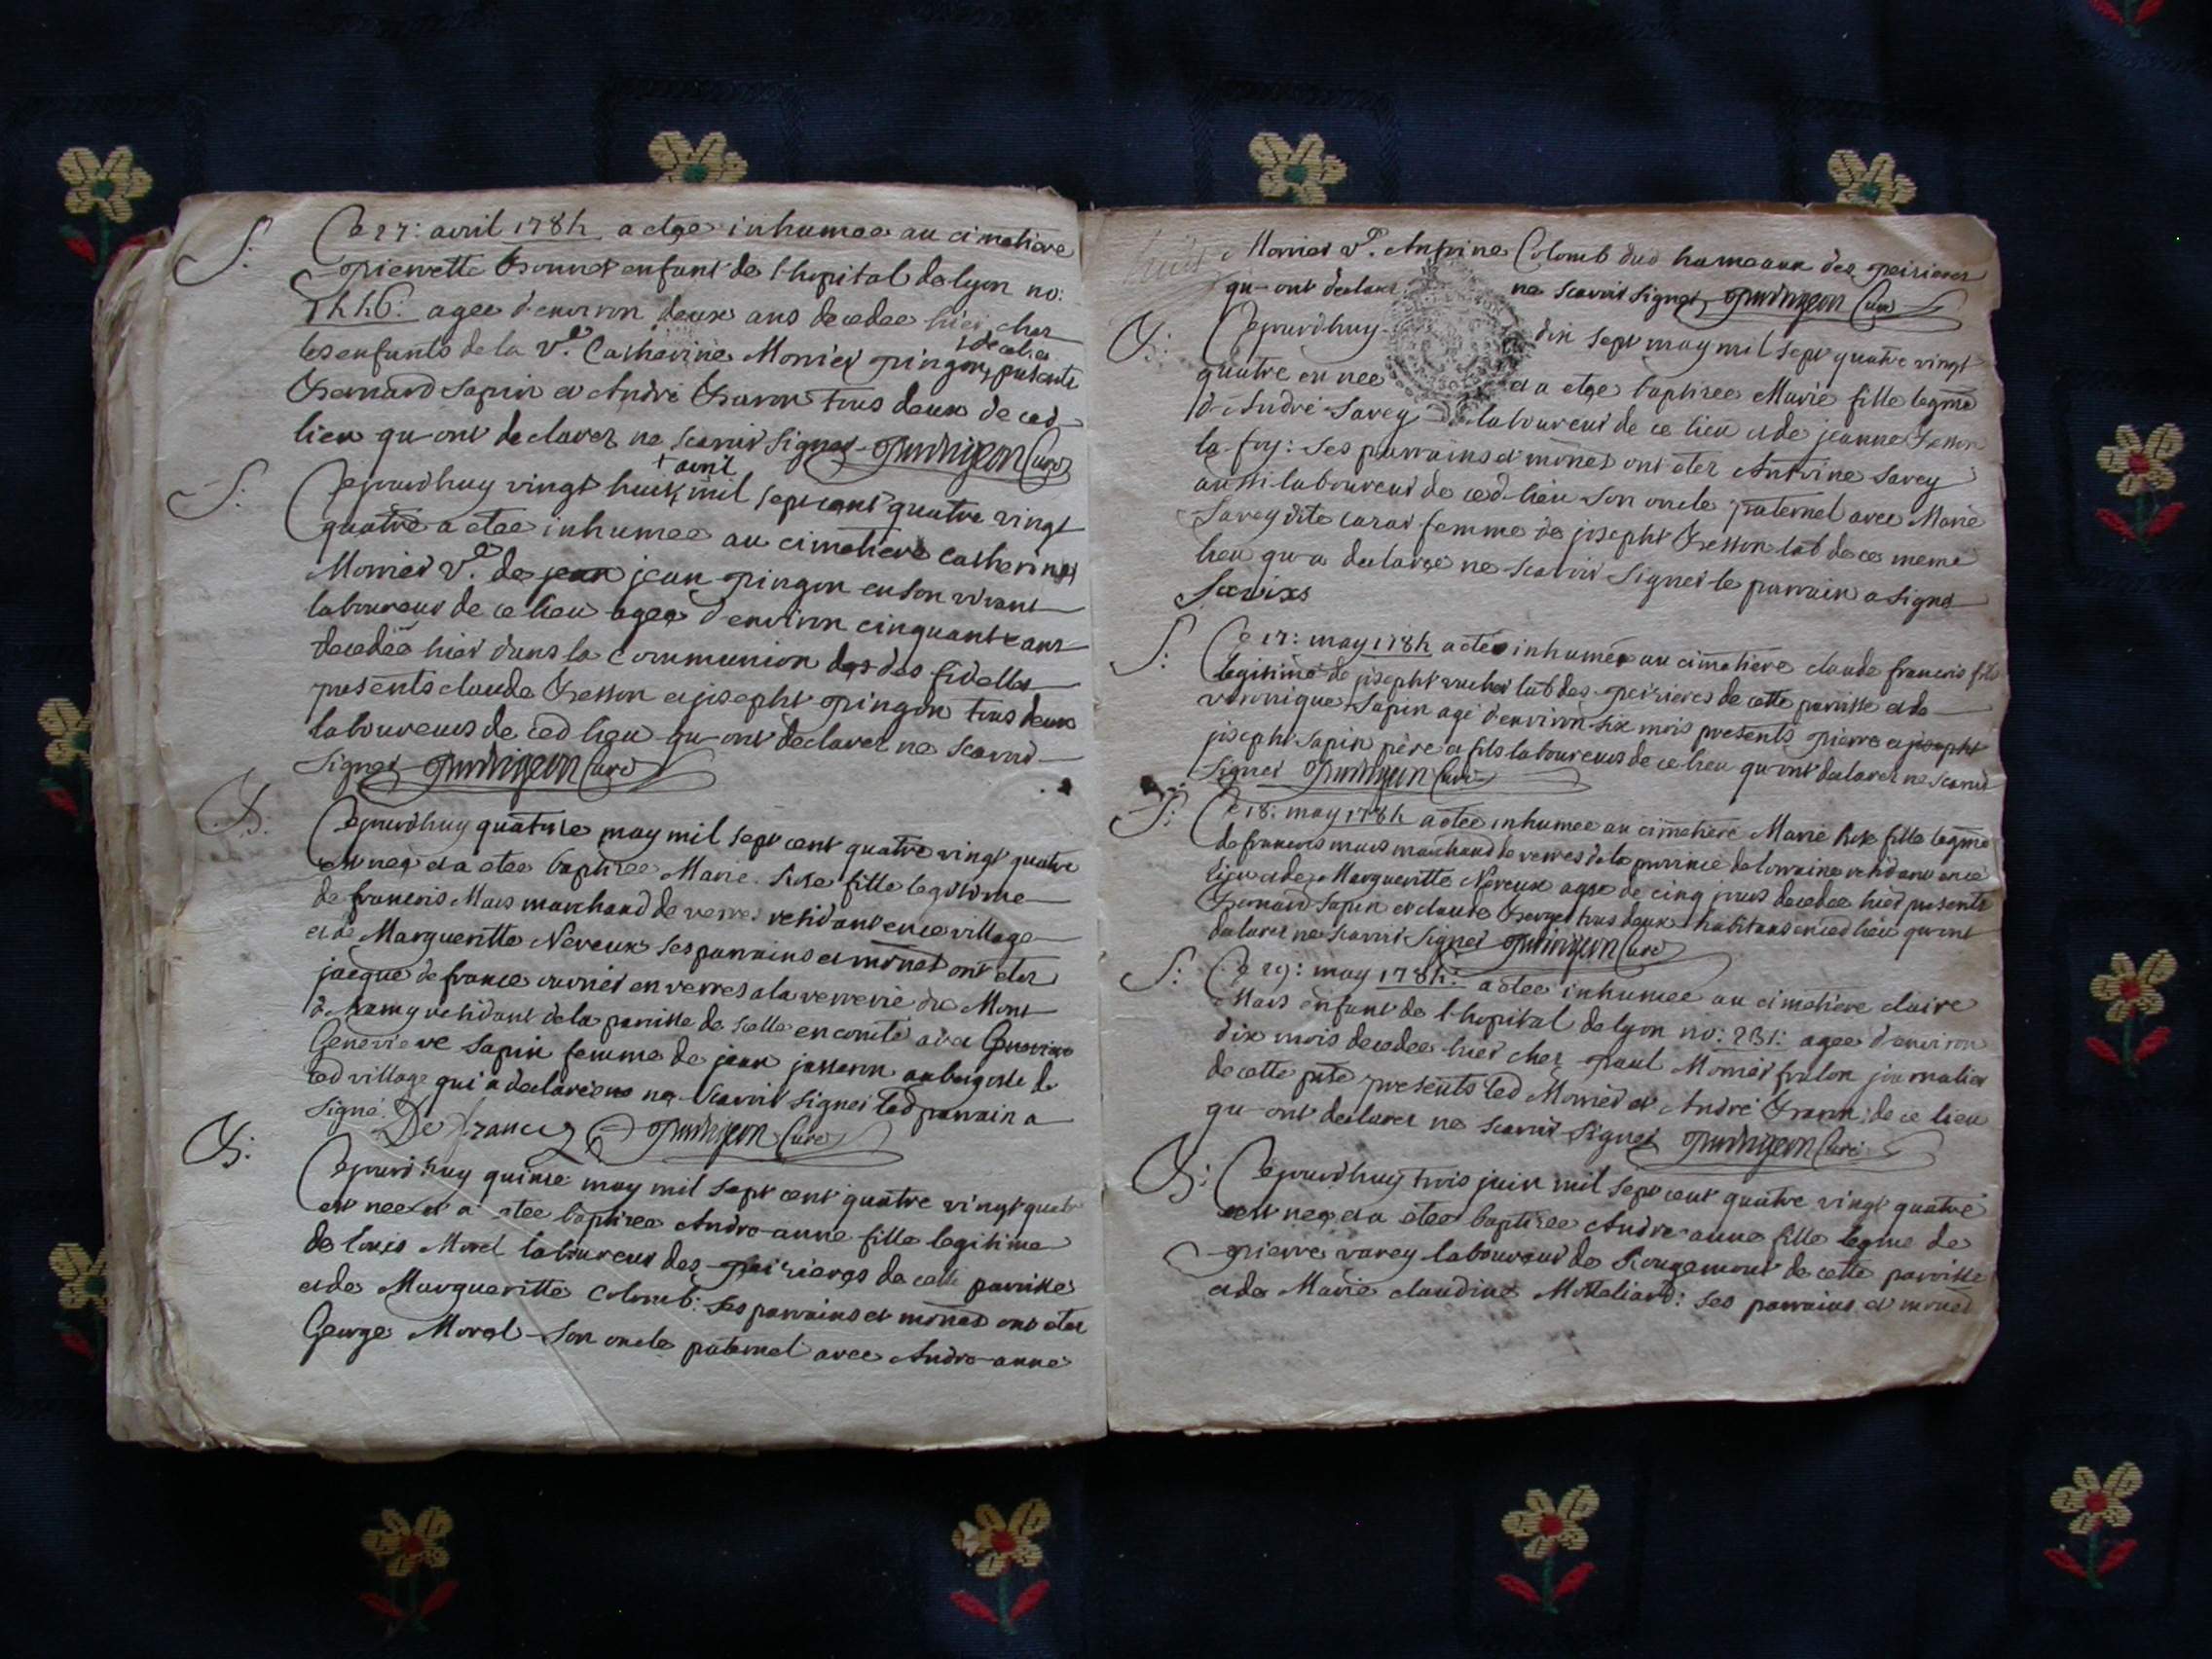 S.
Ce 27: avril 1784 a etee inhumee au cimetiere
pierrette Bonnet enfant de l-hopital de lyon no:
agee d'environ deux ans decedee hier chez
les enfants de la ve. Catherine Monier pingon, presents
Bernard Sapin et André Baron tous deux de ced
lieu qu-ont declarer ne scavoir signer
S.
Cejourdhuy vingt huit + avril mil sept cent quatre vingt
quatre a etee inhumee au cimetiere catherine
Monier ve. de jean jean pingon en son vivant
laboureur de ce lieu agee d'environ cinquante ans
decedée hier dans la Communion des des fidelles
presents claude Besson et josepht pingon tous deux
laboureurs de ced lieu qu-ont declarer ne scavoir
signer
B.
Cejourdhuy quatorze may mil sept cent quatre vingt quatre
est nee et a etee baptisee Marie Rose fille legitime
de francois Mars marchand de verres residant en ce village
et de Margueritte Neveux ses parrains et mones ont eter
jacque de france ouvrier en verres a la verrerie du Mont
residant de la parroisse de selle en comté avec
Genevieve Sapin femme de jean aubergiste de
ced village qui a declaré ne scavoir signer led parrain a
signé. De france
B:
Cejourdhuy quinze may mil sept cent quatre vingt quatre
est nee et a etee baptisee Andre-anne fille legitime
de louis Morel laboureur des peirieres de cette parroisse
et de Margueritte Colomb: ses parrains et mones ont eter
George Morel son oncle paternel avec Andre-anne
Monier ve. Antoine Colomb dud hameaux des peirieres
qu-ont declarer ne scavoir signer
B:
Cejourdhuy dix sept may mil sept quatre vingt
quatre est nee et a etee baptisee Marie fille legme
d'André Savey laboureur de ce lieu et de jeanne Besson
la-foy: ses parrains et mones ont eter Antoine Savey
aussi laboureur de ced lieu son oncle paternel avec Marie
Savey dite femme de josepht Besson lab de ce meme
lieu qu-a declarée ne scavoir signer le parrain a signe
S:
Ce 17: may 1784 a eté inhumé au cimetiere claude francois fils
legitime de josepht lab des peirieres de cette parroisse et de
veronique Sapin agé d'environ six mois presents pierre et josepht
josepht Sapin père et fils laboureurs de ce lieu qu-ont declarer ne scavoir
signer
S:
Ce 18: may 1784 a etee inhumee au cimetiere Marie Rose fille legme
de francois mars marchand de verres de la province de lorraine residant en ce
lieu et de Margueritte Neveux agee de cinq jours decedee hier presents
Bernard Sapin et claude tous deux habitans en ced lieu qu-ont
declarer ne scavoir signer
S:
Ce 29: may 1784: a etee inhumee au cimetiere claire
Mars enfant de l-hopital de lyon no: agee d'environ
dix mois decedee hier chez paul Monier journalier
de cette psse presents led Monier et André Baron de ce lieu
qu-ont declarer ne scavoir signer
B:
Cejourdhuy trois juin mil sept cent quatre vingt quatre
est nee et a etee baptisee Andre-anne fille legme de
pierre varey laboureur de Rougemont de cette parroisse
et de Marie claudine ses parrains et mones